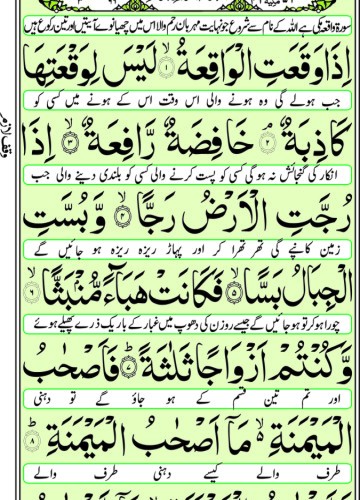 سورۃ واقعہ مکی ہے اللہ کے نام سے شروع جو نہایت مہربان رحم والا اس میں چھیانوے آیتیں اور تین رکوع ہیں
اِذَا وَقَعَتِ الْوَاقِعَةُ ۙ﴿۱﴾ لَيْسَ لِوَقْعَتِهَا
جب ہولے گی وہ ہونے والی اس وقت اس کے ہونے میں کسی کو
كَاذِبَةٌ ۘ﴿۲﴾ خَافِضَةٌ رَّافِعَةٌ ۙ﴿۳﴾ اِذَا
انکار کی گنجائش نہ ہوگی کسی کو پست کرنے والی کسی کو بلندی دینے والی جب
رُجَّتِ الْاَرْضُ رَجًّا ۙ﴿۴﴾ وَّبُسَّتِ
زمین کانپے گی تھر تھرا کر اور پہاڑ ریزہ ریزہ ہو جائیں گے
الْجِبَالُ بَسًّا ۙ﴿۵﴾ فَكَانَتْ هَبَآءً مُّنْۢبَثًّا ۙ﴿۶﴾
چورا ہو کر تو ہو جائیں گے جیسے روزن کی دھوپ میں غبار کے باریک ذرے پھیلے ہوئے
وَّكُنْتُمْ اَزْوَاجًا ثَلٰثَةً ؕ﴿۷﴾ فَاَصْحٰبُ
اور تم تین قسم کے ہو جاؤ گے تو دہنی
الْمَيْمَنَةِ ۙ۬ مَاۤ اَصْحٰبُ الْمَيْمَنَةِ ؕ﴿۸﴾
طرف والے کیسے دہنی طرف والے